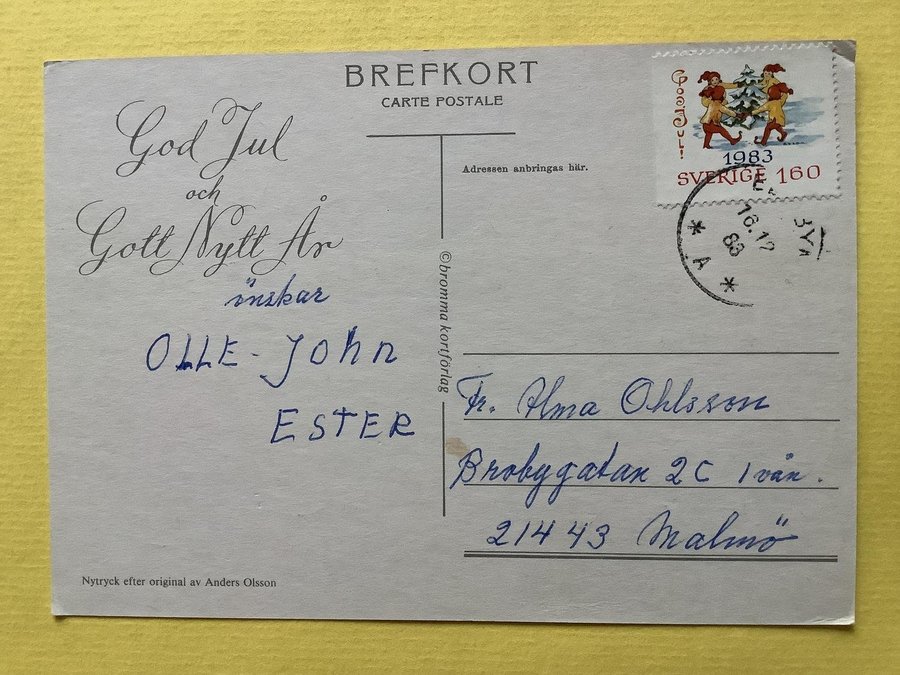 BREFKORT
CARTE POSTALE
God Jul
och
Gott Nytt År
önskar
OLLE - John
ESTER
Nytryck efter original av Anders Olsson
©bromma kortförlag
Adressen anbringas här.
God Jul!
1983
SVERIGE 160
16.12
83
* A *
Fr. Alma Ohlsson
Brobygatan 2C 1 vån.
21443 Malmö